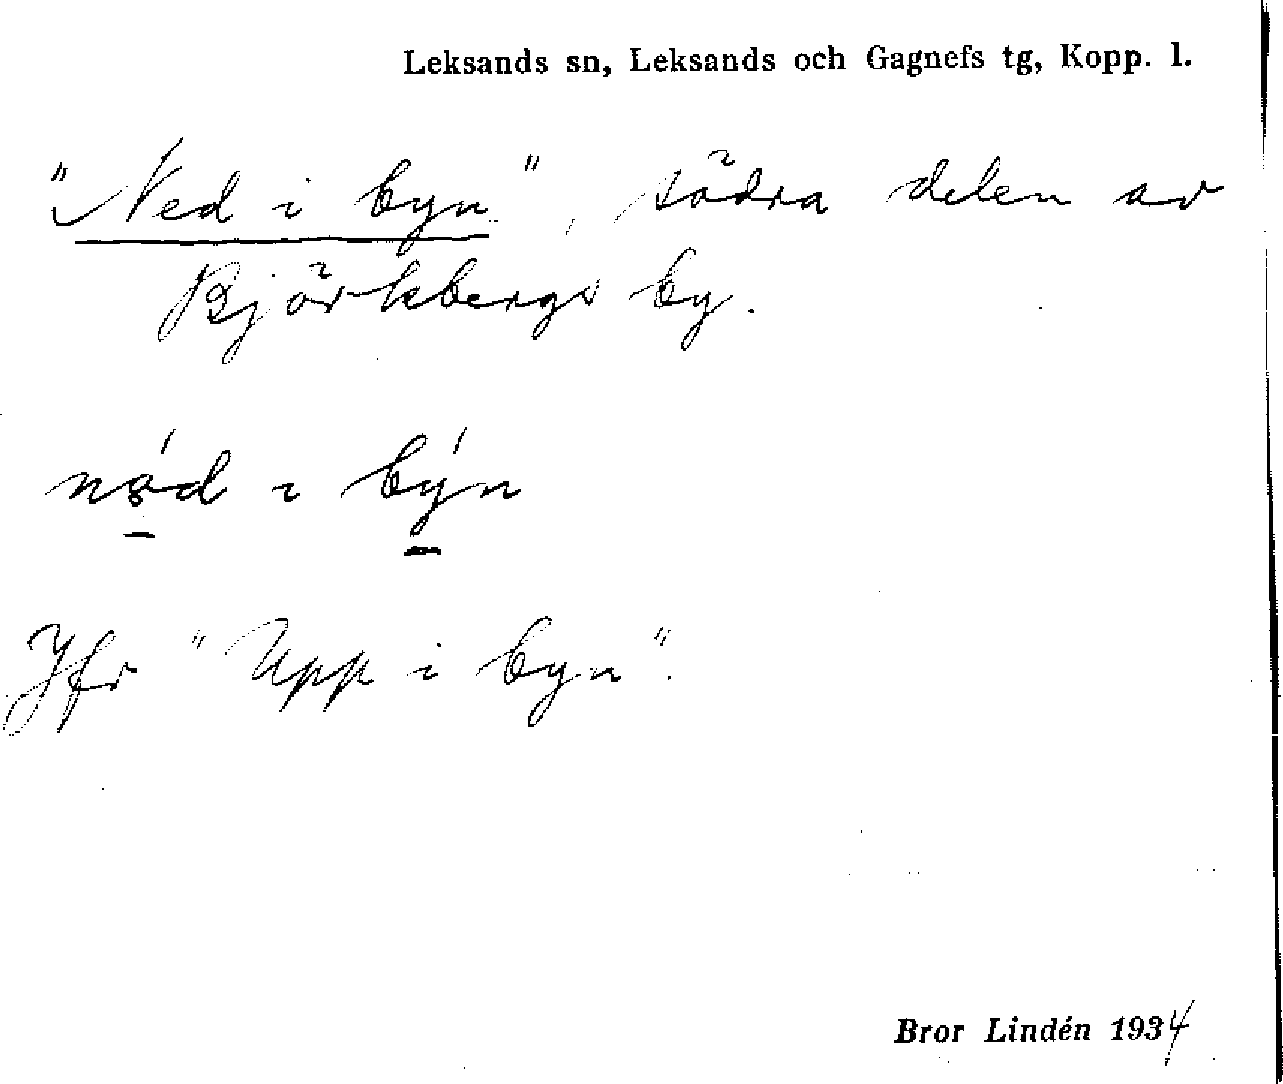 Leksands sn, Leksands och Gagnefs tg, Kopp. l.
"Ned i byn", södra delen av
Björkbergs by.
nǿd i býn
Jfr "Upp i byn".
Bror Lindén 1934